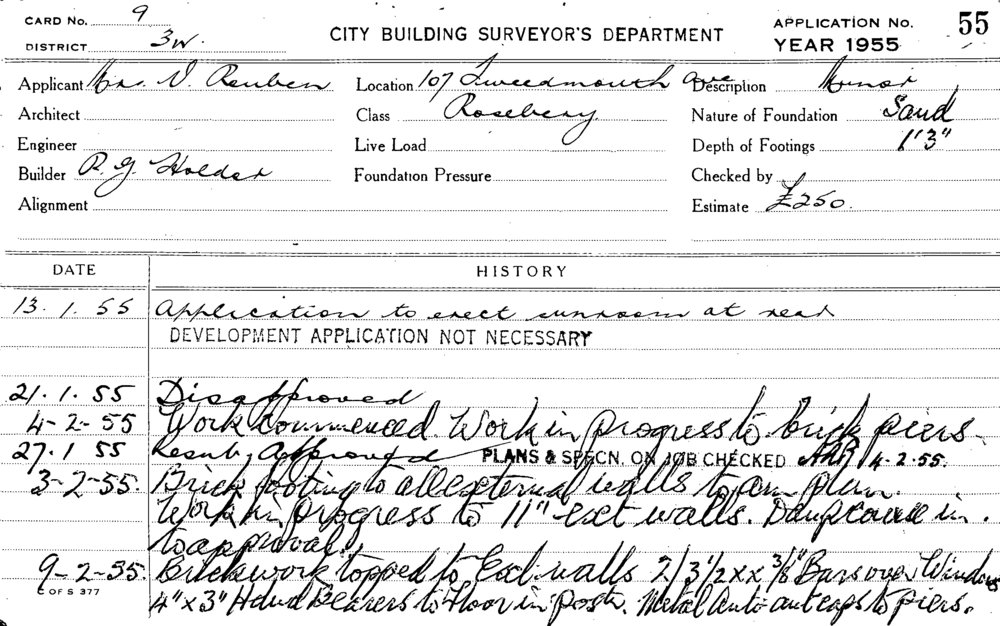 CARD No. 9
DISTRICT 3W.
CITY BUILDING SURVEYOR'S DEPARTMENT
APPLICATION No. 55
YEAR 1955
Applicant Mrs. V. Reuben Location 107 Tweedmouth ave Description Minor
Architect Class Rosebery Nature of Foundation Sand
Engineer Live Load Depth of Footings 1'3"
Builder R. G. Holder Foundation Pressure Checked by
Alignment Estimate £250.
DATE HISTORY
13. 1. 55 Application to erect sunroom at rear
DEVELOPMENT APPLICATION NOT NECESSARY
21. 1. 55 Disapproved
4-2-55 Work commenced. Work in progress to brick piers
27. 1 55 Resub, Approved PLANS & SPECN. ON JOB CHECKED 4.2.55.
3-2-55. Brick footing to all external walls to plan.
Work in progress to 11" ext walls. Dampcourse in.
to approval.
9-2-55. Brickwork topped to Ext. walls 2/3 1/2 x 3/8" Bars over Windows
4" x 3" Hdwd Bearers to Floor in Postn. Metal Anti ant caps to piers.
C OF S 377